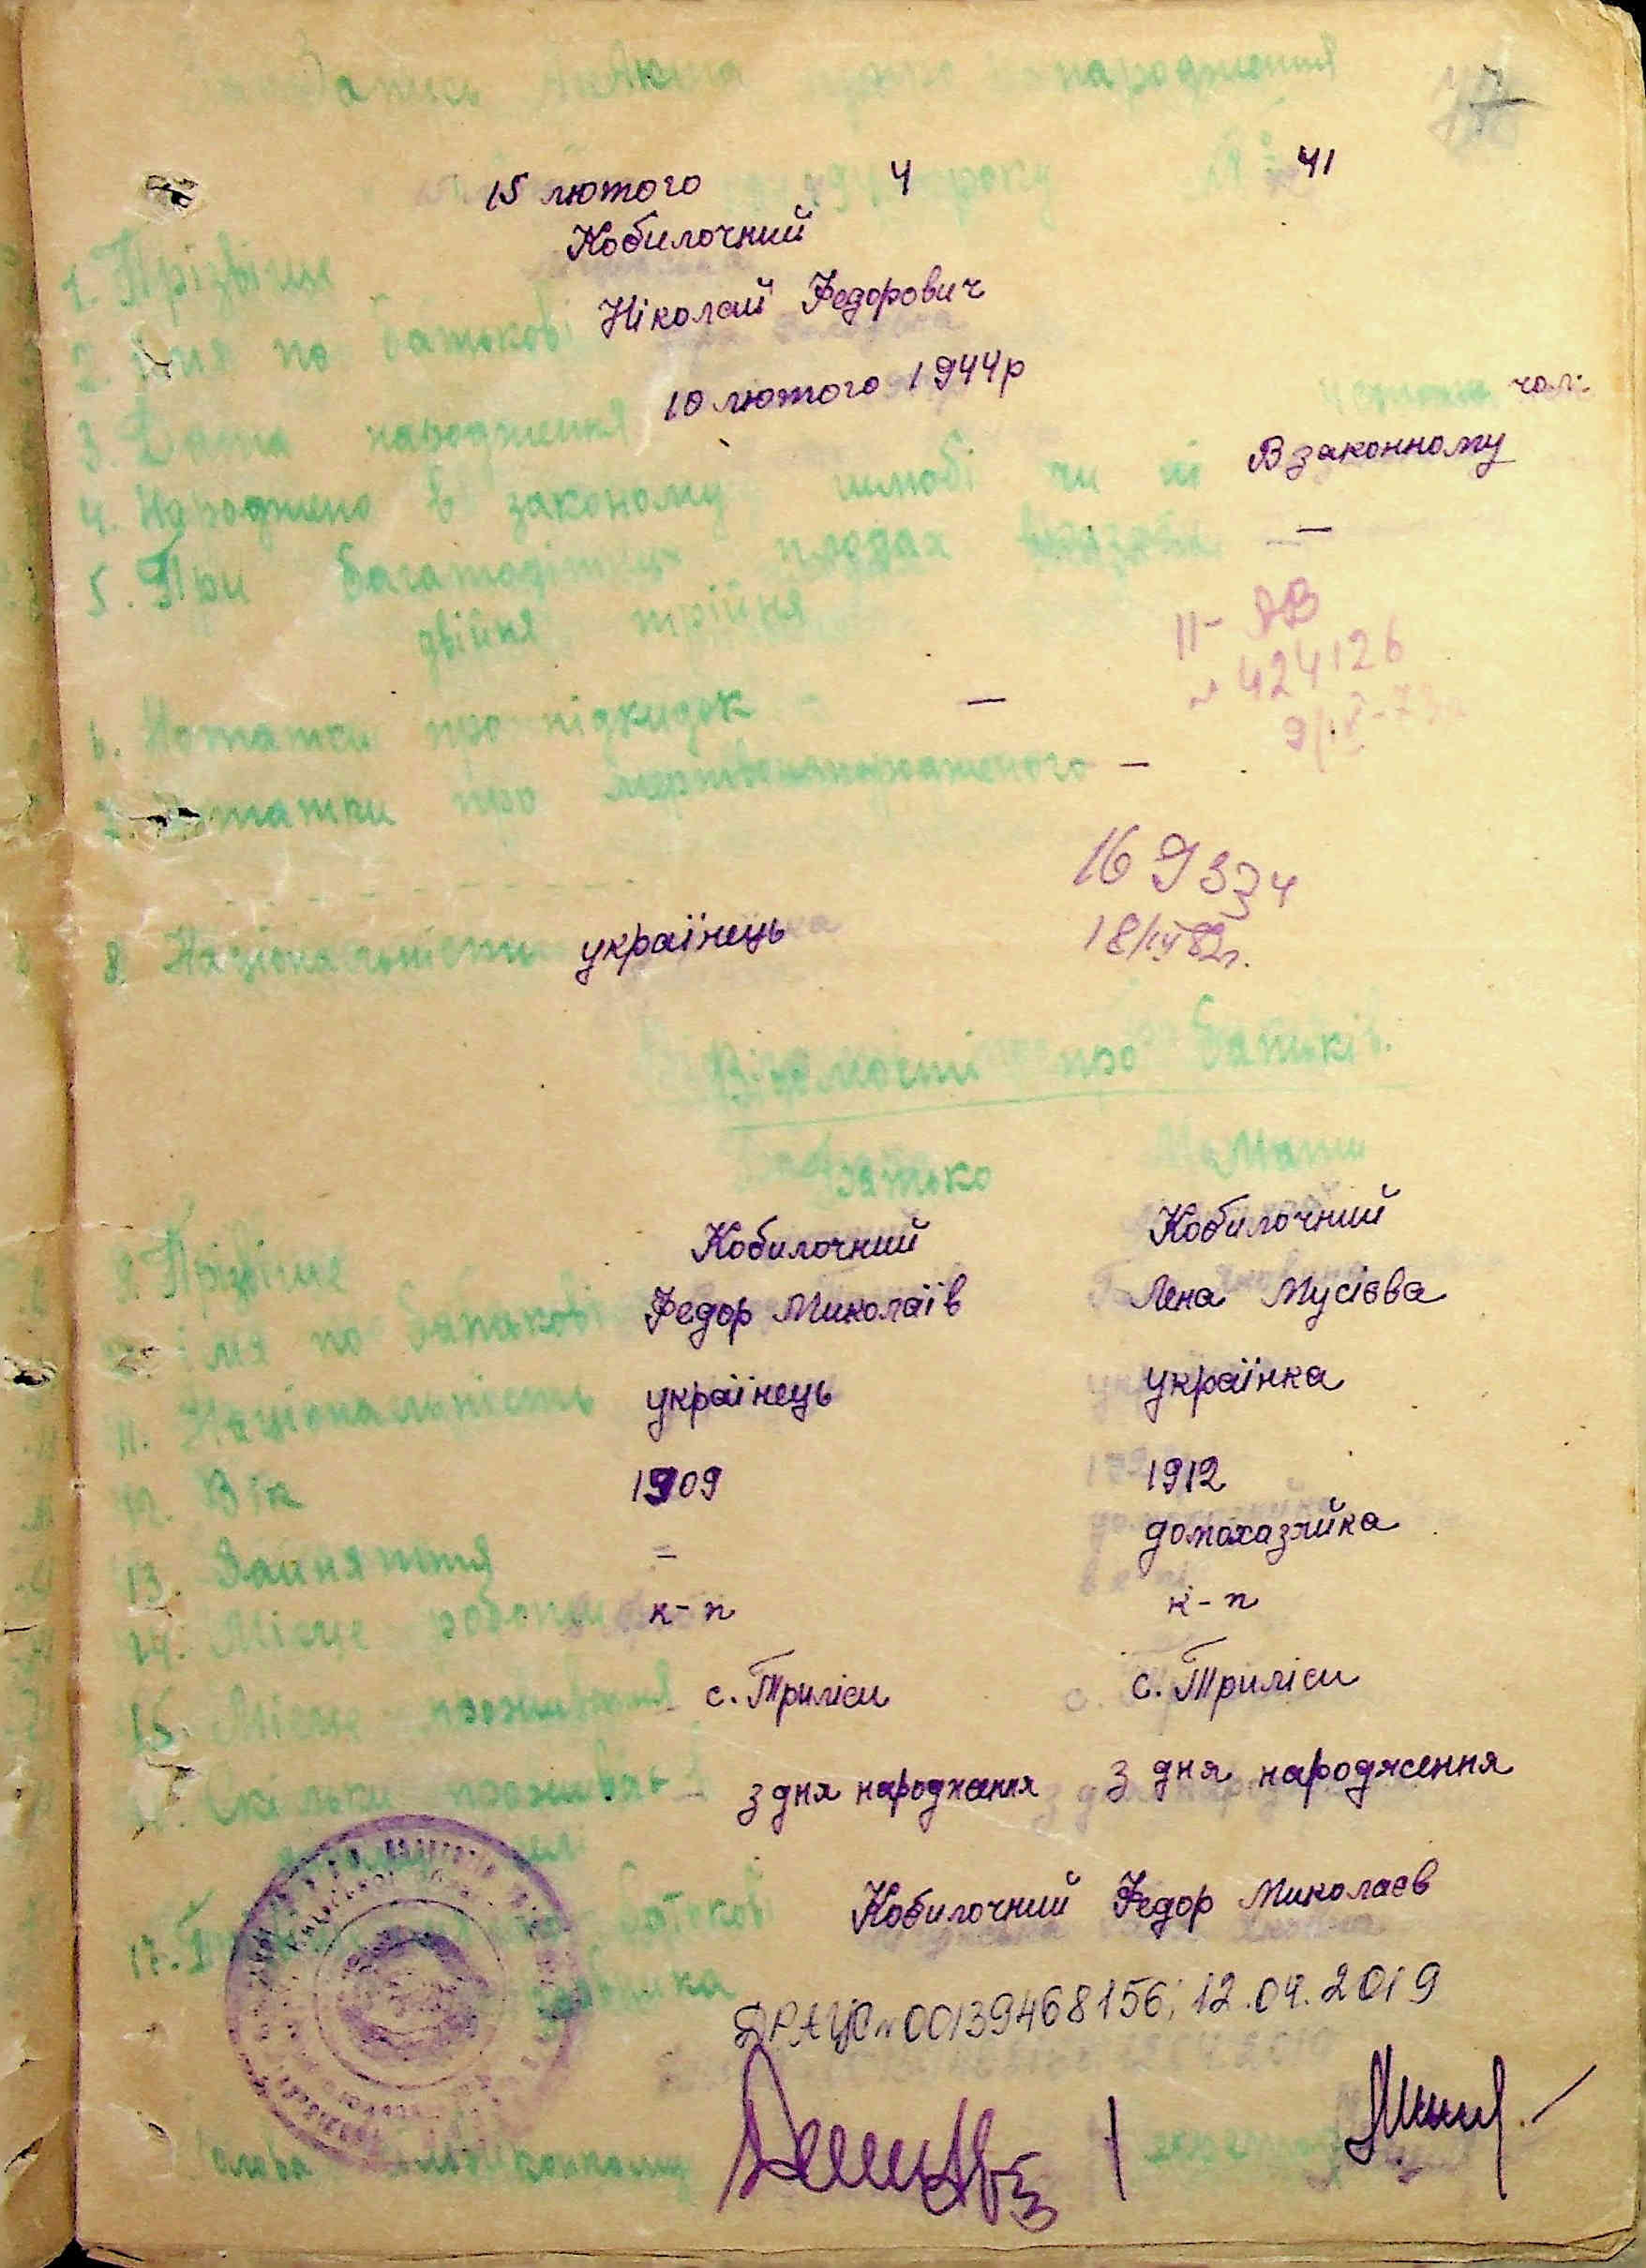 Запись Акта про народження
15 лютого 4 1941 року № 41
1. Прізвіще Кобилочний
2. імя по батькові Ніколай Федорович
3. Дата народження 10 лютого 1944р чол.
4. Народжено в законому шлюбі чи ні В законному
5. При багатодітних плодах вказати —
двійня трійня
II-АВ
№ 424126
6. Нотатки про підкидок —
7. Нотатки про мертвонароженого —
169334
18/IV 82г.
8. Національність українець
Відомості про батьків.
Батько Мати
9. Прізвіще Кобилочний Кобилочний
імя по батькові Федор Миколаїв Лена Мусієва
11. Національність українець українка
12. Вік 1909 1912
13. Заиняття — домохазяйка
14. Місце роботи к-п к-п
15. Місце проживання с. Триліси с. Триліси
Скільки проживає з дня народження з дня народження
17. батькові Кобилочний Федор Миколаєв
ДРАЦС № 00139468156; 12.04.2019
Голова